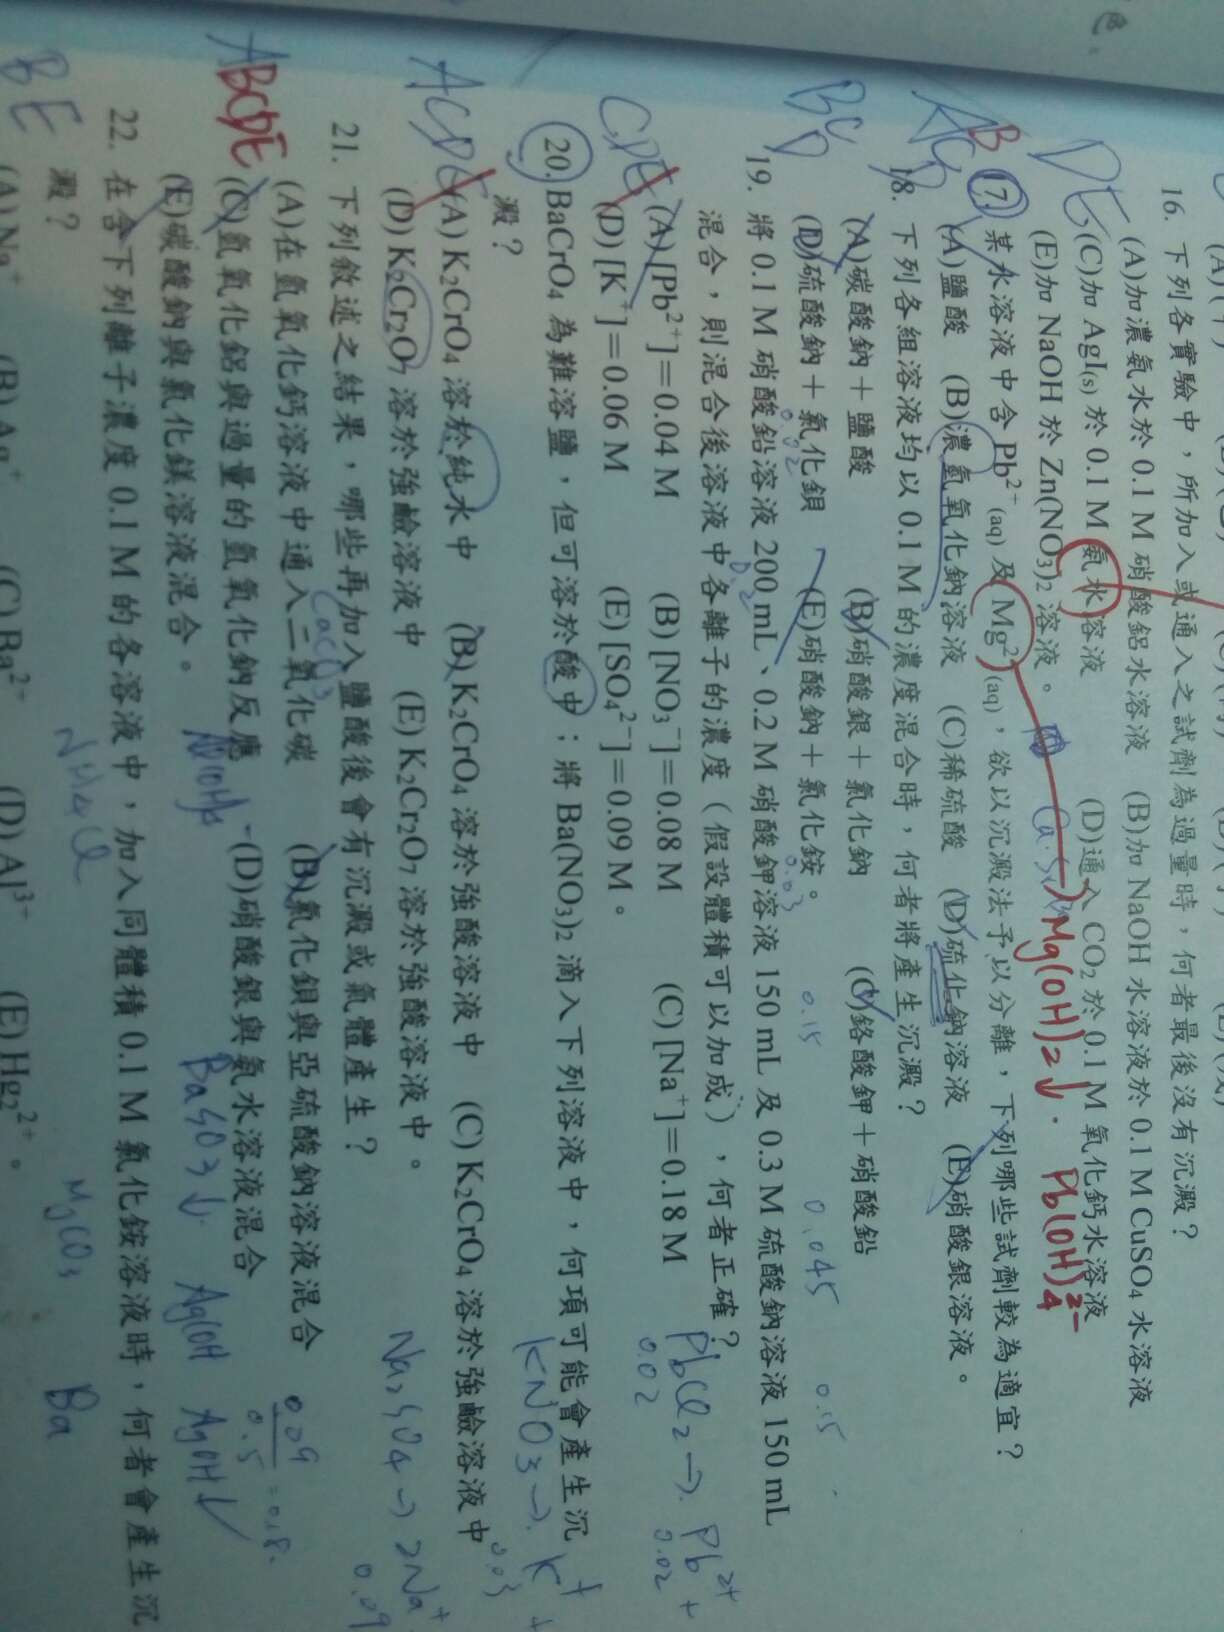 16. 下列各實驗中，所加入或通入之試劑為過量時，何者最後沒有沉澱？
(A)加濃氨水於 0.1 M 硝酸鋁水溶液 (B)加 NaOH 水溶液於 0.1 M CuSO₄ 水溶液
(C)加 AgI(s) 於 0.1 M 氨水溶液 (D)通入 CO₂ 於 0.1 M 氧化鈣水溶液
(E)加 NaOH 於 Zn(NO₃)₂ 溶液。
DE
Mg(OH)₂↓. Pb(OH)₄²⁻
17. 某水溶液中含 Pb²⁺(aq) 及 Mg²⁺(aq)，欲以沉澱法予以分離，下列哪些試劑較為適宜？
(A)鹽酸 (B)濃氫氧化鈉溶液 (C)稀硫酸 (D)硫化鈉溶液 (E)硝酸銀溶液。
B
18. 下列各組溶液均以 0.1 M 的濃度混合時，何者將產生沉澱？
(A)碳酸鈉＋鹽酸 (B)硝酸銀＋氯化鈉 (C)鉻酸鉀＋硝酸鉛
(D)硫酸鈉＋氯化鋇 (E)硝酸鈉＋氯化銨。
BC
D
0.02 0.03 0.15 0.045 0.15
19. 將 0.1 M 硝酸鉛溶液 200 mL、0.2 M 硝酸鉀溶液 150 mL 及 0.3 M 硫酸鈉溶液 150 mL
0.2
混合，則混合後溶液中各離子的濃度（假設體積可以加成），何者正確？
(A) [Pb²⁺]＝0.04 M (B) [NO₃⁻]＝0.08 M (C) [Na⁺]＝0.18 M
(D) [K⁺]＝0.06 M (E) [SO₄²⁻]＝0.09 M。
CDE
PbCl₂ → Pb²⁺ +
0.02 0.02
20. BaCrO₄ 為難溶鹽，但可溶於酸中；將 Ba(NO₃)₂ 滴入下列溶液中，何項可能會產生沉
澱？
KNO₃ → K⁺ +
0.03
(A) K₂CrO₄ 溶於純水中 (B) K₂CrO₄ 溶於強酸溶液中 (C) K₂CrO₄ 溶於強鹼溶液中
(D) K₂Cr₂O₇ 溶於強鹼溶液中 (E) K₂Cr₂O₇ 溶於強酸溶液中。
ACDE
Na₂SO₄ → 2Na⁺
0.09
21. 下列敘述之結果，哪些再加入鹽酸後會有沉澱或氣體產生？
CaCO₃
(A)在氫氧化鈣溶液中通入二氧化碳 (B)氯化鋇與亞硫酸鈉溶液混合
(C)氫氧化鋁與過量的氫氧化鈉反應 (D)硝酸銀與氨水溶液混合
(E)碳酸鈉與氯化鎂溶液混合。
ABCDE
BaSO₃↓. AgOH AgOH↓
0.09
0.5
=0.18.
22. 在含下列離子濃度 0.1 M 的各溶液中，加入同體積 0.1 M 氯化銨溶液時，何者會產生沉
澱？
NH₄Cl MgCO₃ Ba
BE
(A) Na⁺ (B) Ag⁺ (C) Ba²⁺ (D) Al³⁺ (E) Hg₂²⁺。